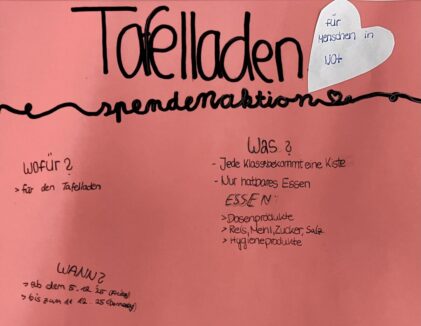 Tafelladen
für
Menschen in
Not
spendenaktion
Wofür?
> für den Tafelladen
Was?
- Jede Klasse bekommt eine Kiste
- Nur haltbares Essen
ESSEN:
> Dosenprodukte
> Reis, Mehl, Zucker, Salz
> Hygieneprodukte
WANN?
> ab dem 5.12.25 (Freitag)
> bis zum 11.12.25